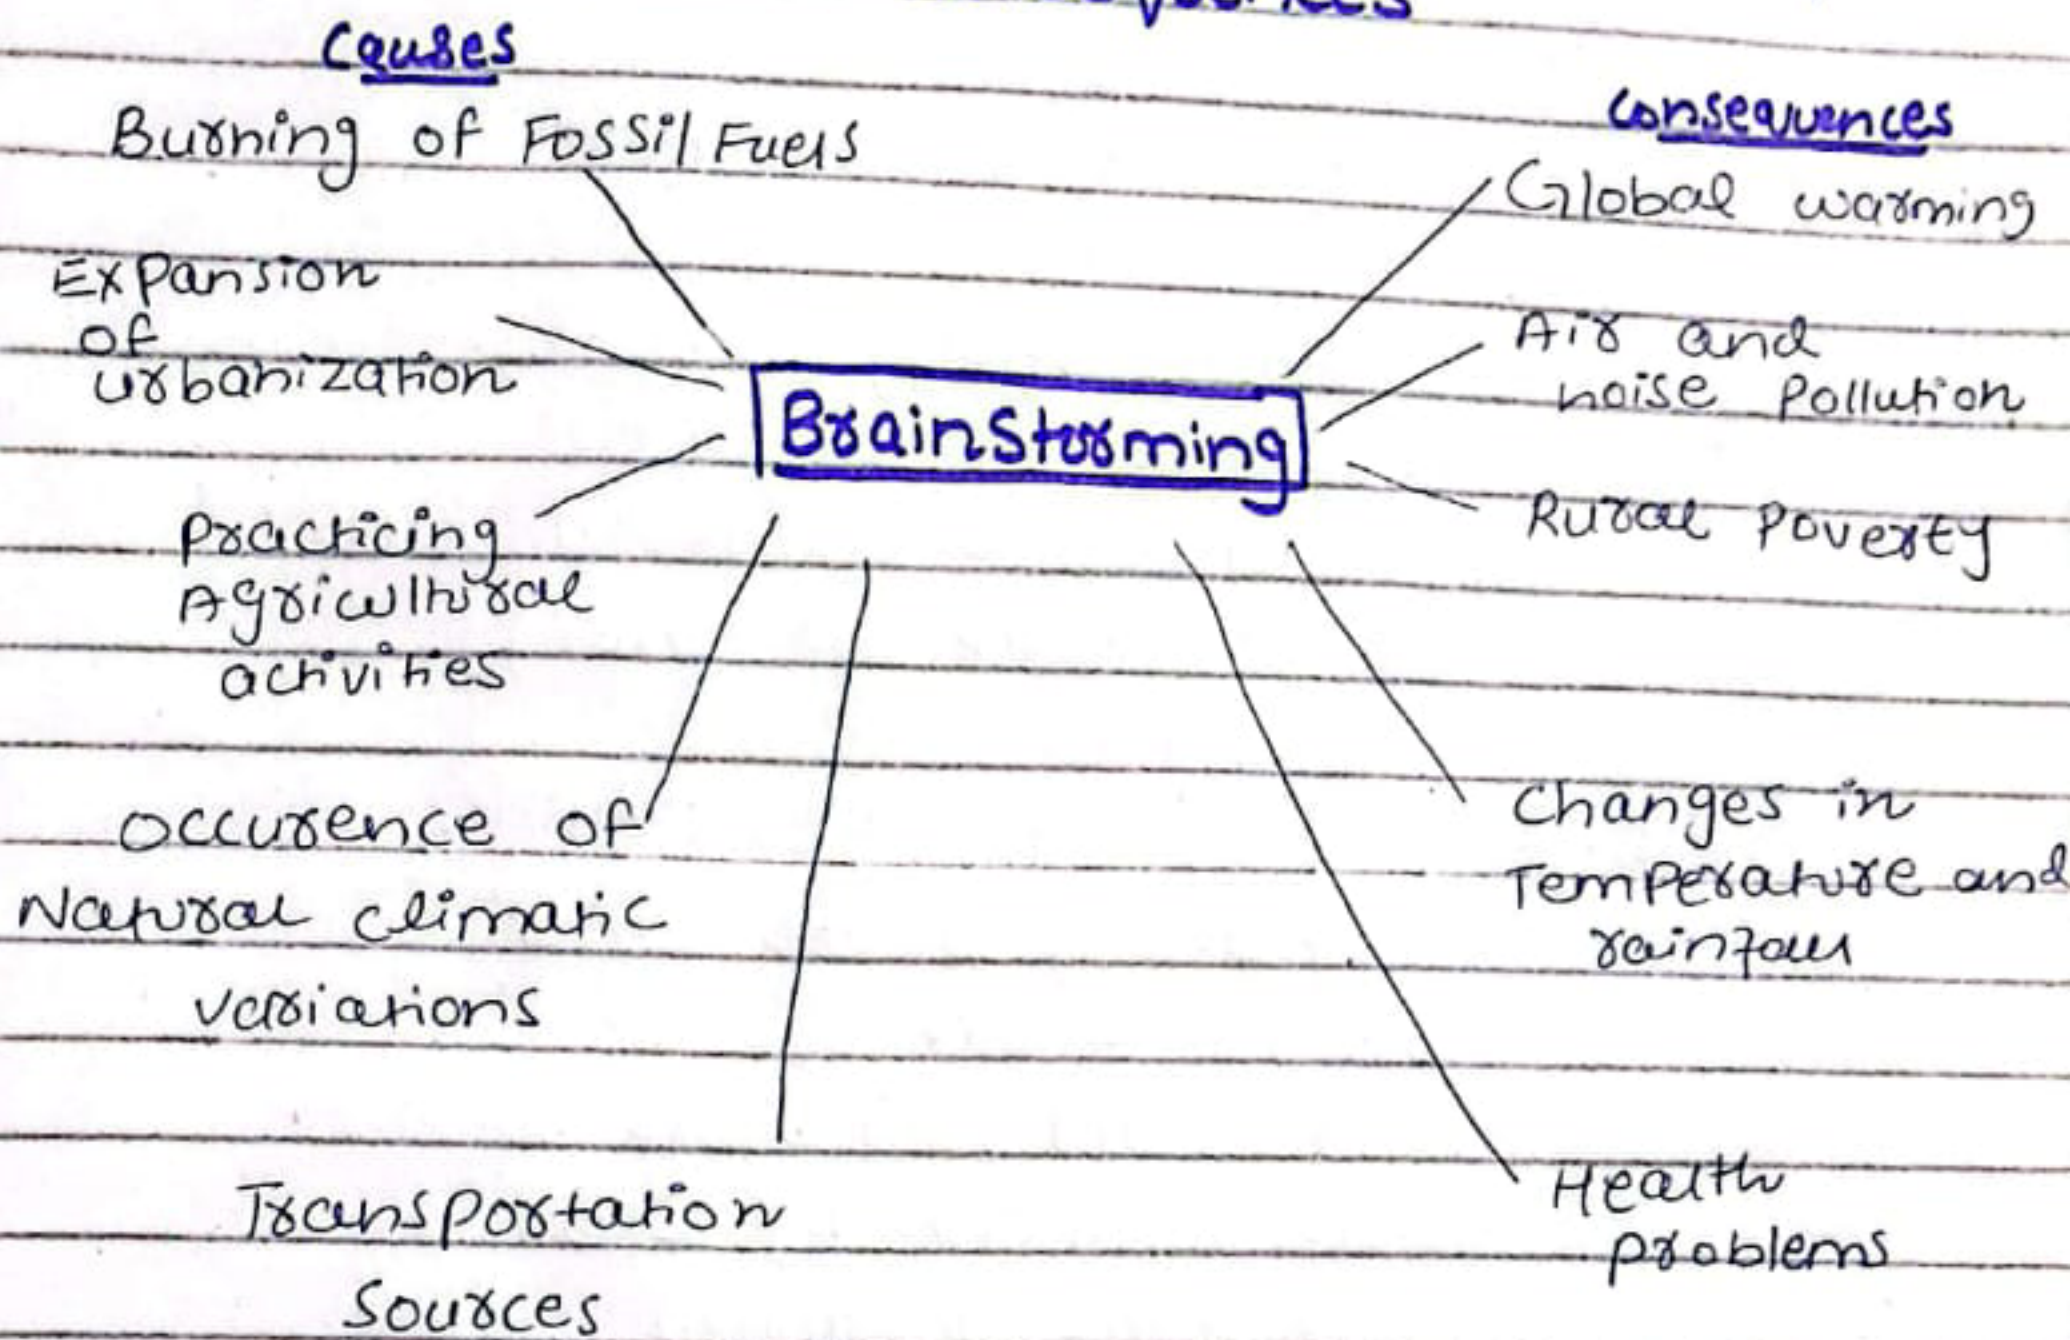 Causes
Burning of Fossil Fuels
Expansion
of
urbanization
Practicing
Agricultural
activities
Occurence of
Natural climatic
variations
Transportation
Sources
BrainStorming
Consequences
Global warming
Air and
noise Pollution
Rural Poverty
Changes in
Temperature and
rainfall
Health
problems